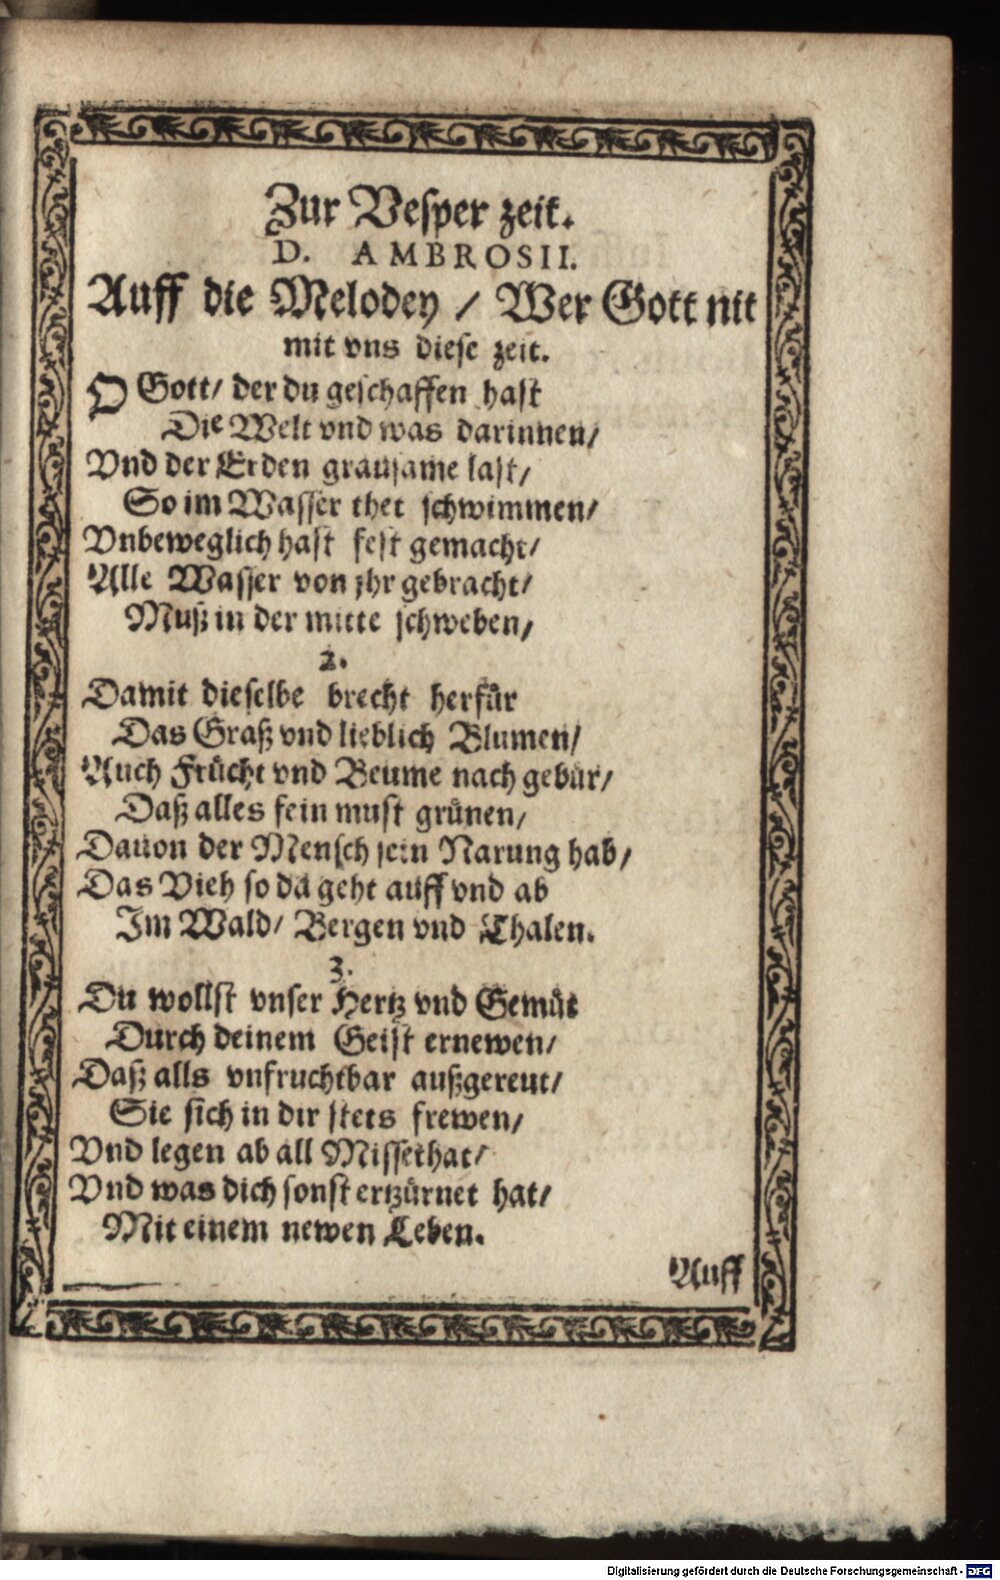 Zur Veſper zeit.
D. AMBROSII.
Auff die Melodey / Wer Gott nit
mit vns dieſe zeit.
O Gott/ der du geſchaffen haſt
Die Welt vnd was darinnen/
Vnd der Erden grauſame laſt/
So im Waſſer thet ſchwimmen/
Vnbeweglich haſt feſt gemacht/
Alle Waſſer von jhr gebracht/
Muß in der mitte ſchweben/
2.
Damit dieſelbe brecht herfuͤr
Das Graß vnd lieblich Blumen/
Auch Fruͤcht vnd Beume nach gebuͤr/
Daß alles fein muſt gruͤnen/
Dauon der Menſch ſein Narung hab/
Das Vieh ſo da geht auff vnd ab
Im Wald/ Bergen vnd Thalen.
3.
Du wollſt vnſer Hertz vnd Gemuͤt
Durch deinem Geiſt ernewen/
Daß alls vnfruchtbar außgereut/
Sie ſich in dir ſtets frewen/
Vnd legen ab all Miſſethat/
Vnd was dich ſonſt ertzuͤrnet hat/
Mit einem newen Leben.
Auff
Digitalisierung gefördert durch die Deutsche Forschungsgemeinschaft - DFG